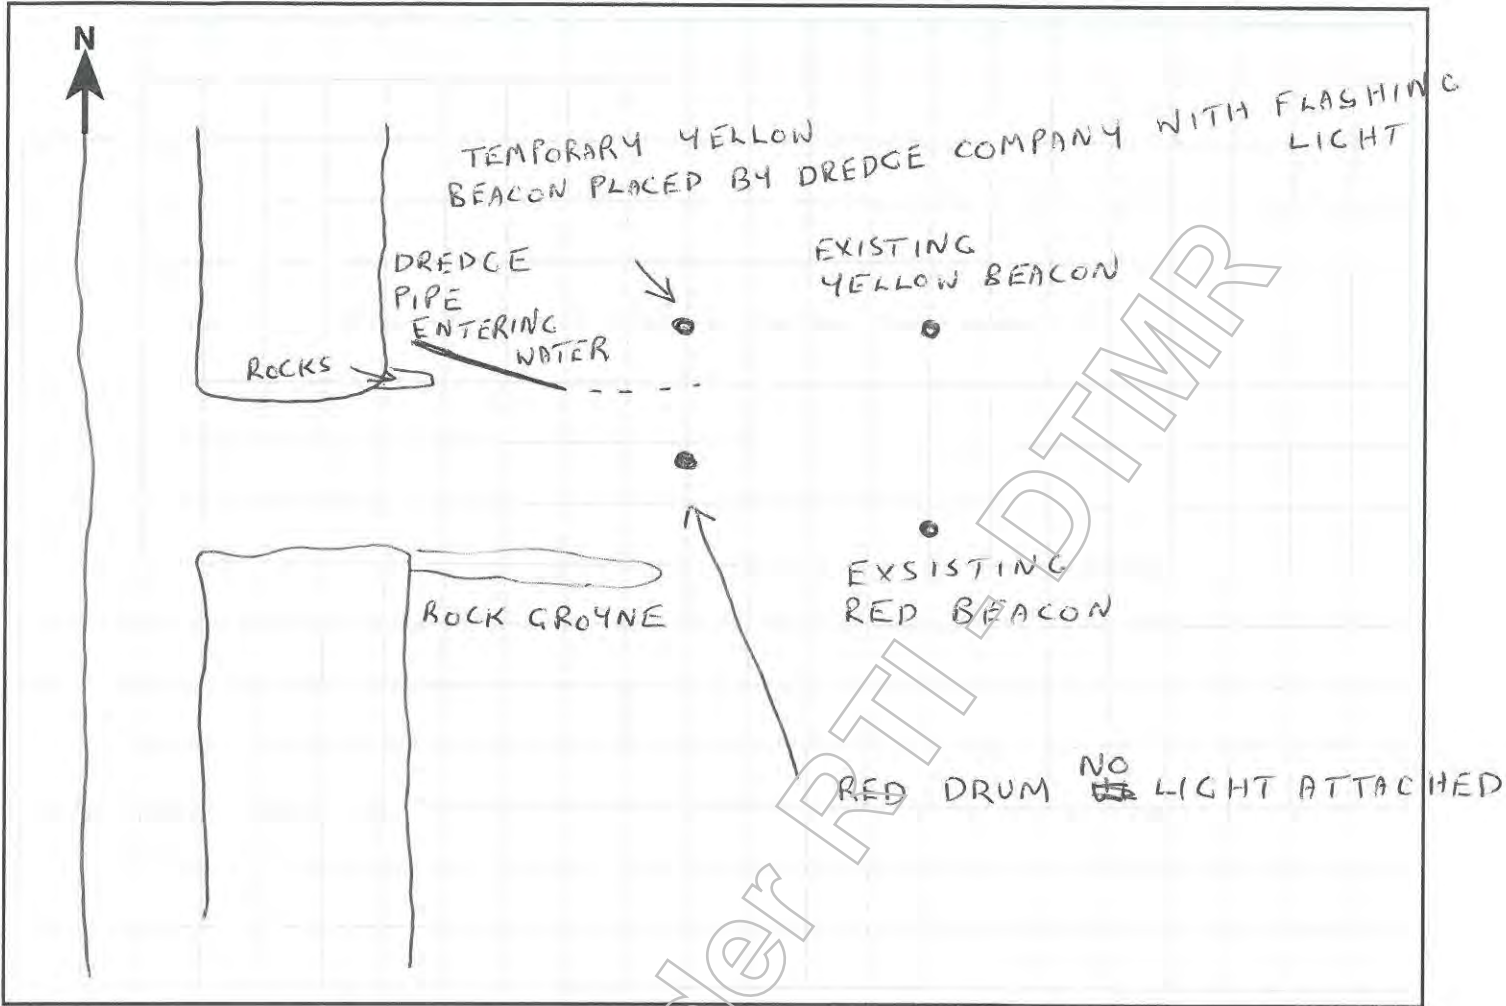 N
TEMPORARY YELLOW
BEACON PLACED BY DREDGE COMPANY WITH FLASHING
LIGHT
DREDGE
PIPE
ENTERING
WATER
EXISTING
YELLOW BEACON
ROCKS
ROCK GROYNE
EXSISTING
RED BEACON
RED DRUM NO LIGHT ATTACHED
der RTI - DTMR